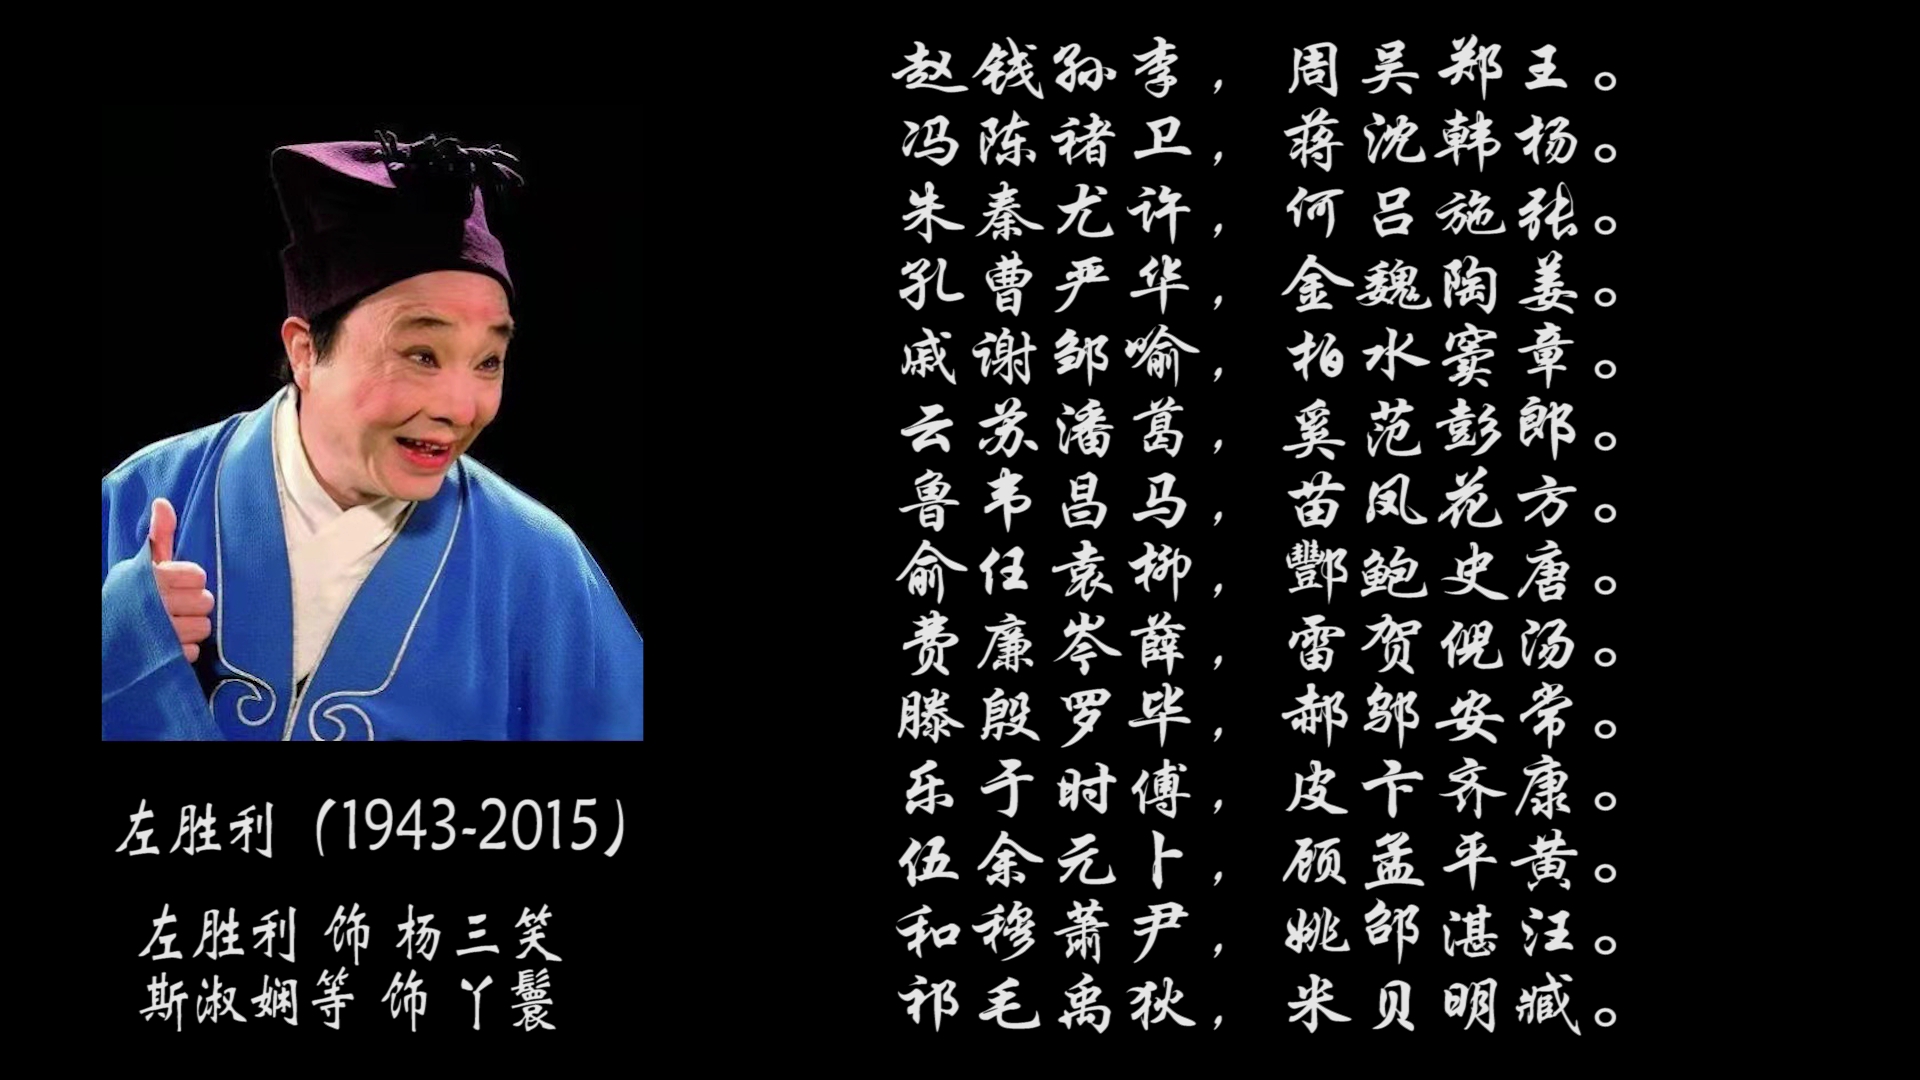 赵钱孙李，周吴郑王。
冯陈褚卫，蒋沈韩杨。
朱秦尤许，何吕施张。
孔曹严华，金魏陶姜。
戚谢邹喻，柏水窦章。
云苏潘葛，奚范彭郎。
鲁韦昌马，苗凤花方。
俞任袁柳，酆鲍史唐。
费廉岑薛，雷贺倪汤。
滕殷罗毕，郝邬安常。
乐于时傅，皮卞齐康。
伍余元卜，顾孟平黄。
和穆萧尹，姚邵湛汪。
祁毛禹狄，米贝明臧。
左胜利（1943-2015）
左胜利 饰 杨三笑
斯淑娴等 饰 丫鬟